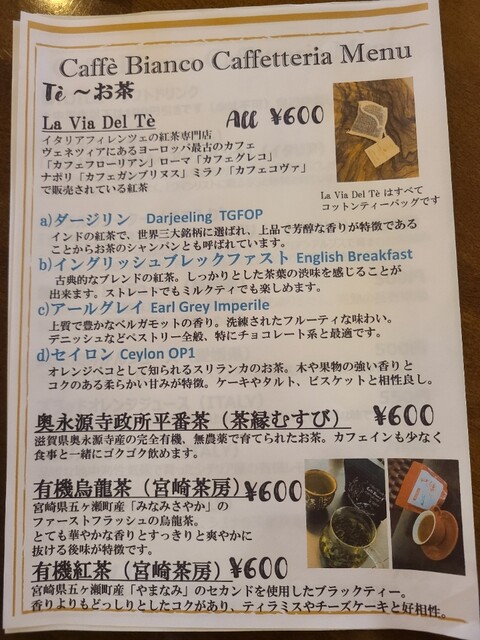 Caffè Bianco Caffetteria Menu
Tè ～お茶
La Via Del Tè All ¥600
イタリアフィレンツェの紅茶専門店
ヴェネツィアにあるヨーロッパ最古のカフェ
「カフェフローリアン」ローマ「カフェグレコ」
ナポリ「カフェガンブリヌス」ミラノ「カフェコヴァ」
で販売されている紅茶
La Via Del Tè はすべて
コットンティーバッグです
a)ダージリン Darjeeling TGFOP
インドの紅茶で、世界三大銘柄に選ばれ、上品で芳醇な香りが特徴である
ことからお茶のシャンパンとも呼ばれています。
b)イングリッシュブレックファスト English Breakfast
古典的なブレンドの紅茶。しっかりとした茶葉の渋味を感じることが
出来ます。ストレートでもミルクティでも楽しめます。
c)アールグレイ Earl Grey Imperile
上質で豊かなベルガモットの香り。洗練されたフルーティな味わい。
デニッシュなどペストリー全般、特にチョコレート系と最適です。
d)セイロン Ceylon OP1
オレンジペコとして知られるスリランカのお茶。木や果物の強い香りと
コクのある柔らかい甘みが特徴。ケーキやタルト、ビスケットと相性良し。
奥永源寺政所平番茶（茶縁むすび） ¥600
滋賀県奥永源寺産の完全有機、無農薬で育てられたお茶。カフェインも少なく
食事と一緒にゴクゴク飲めます。
有機烏龍茶（宮崎茶房）¥600
宮崎県五ヶ瀬町産「みなみさやか」の
ファーストフラッシュの烏龍茶。
とても華やかな香りとすっきりと爽やかに
抜ける後味が特徴です。
有機紅茶（宮崎茶房）¥600
宮崎県五ヶ瀬町産「やまなみ」のセカンドを使用したブラックティー。
香りよりもどっしりとしたコクがあり、ティラミスやチーズケーキと好相性。